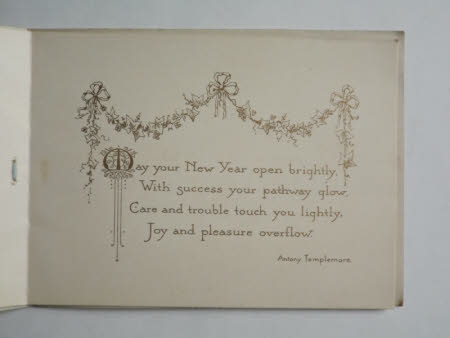 May your New Year open brightly,
With success your pathway glow,
Care and trouble touch you lightly,
Joy and pleasure overflow.
Antony Templemore.